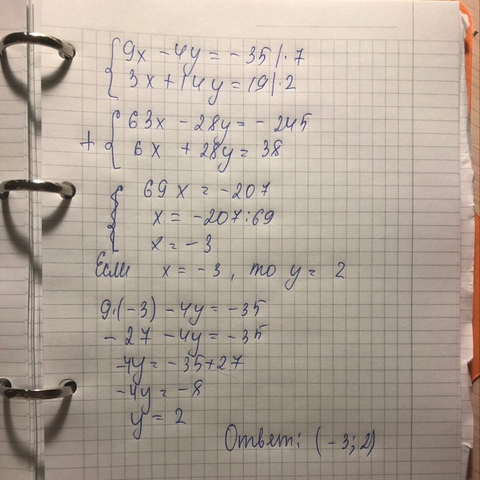 9x - 4y = -35 | · 7
3x + 14y = 19 | · 2
+ 63x - 28y = -245
6x + 28y = 38
69x = -207
x = -207 : 69
x = -3
Если x = -3, то y = 2
9·(-3) - 4y = -35
-27 - 4y = -35
-4y = -35 + 27
-4y = -8
y = 2
Ответ: (-3; 2)